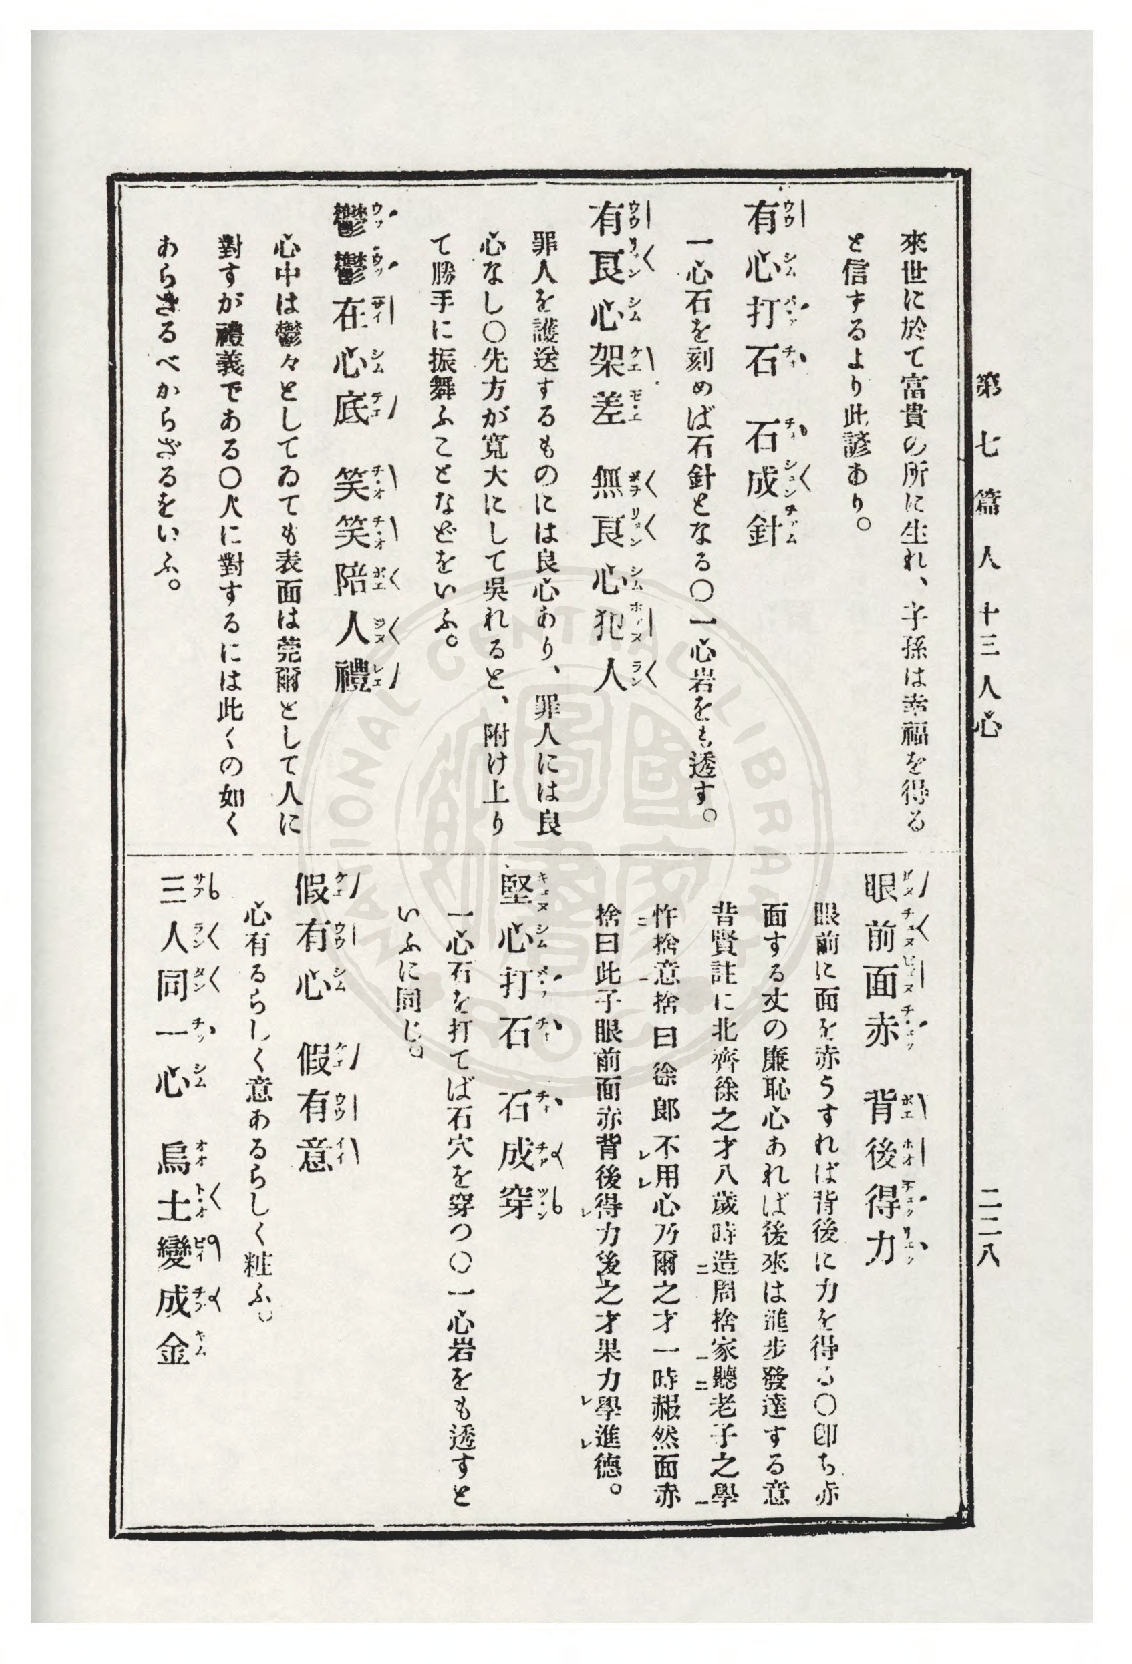 第七篇 人 十三 人心
二二八
來世に於て富貴の所に生れ、子孫は幸福を得る
と信ずるより此諺あり。
有心打石 石成針
一心石を刻めば石針となる〇一心岩をも透す。
有良心架差 無良心犯人
罪人を護送するものには良心あり、罪人には良
心なし〇先方が寬大にして吳れると、附け上り
て勝手に振舞ふことなどをいふ。
鬱鬱在心底 笑笑陪人禮
心中は鬱々としてゐても表面は莞爾として人に
對すが禮義である〇人に對するには此くの如く
あらざるべからざるをいふ。
眼前面赤 背後得力
眼前に面を赤うすれば背後に力を得る〇卽ち赤
面する丈の廉恥心あれば後來は進步發達する意
昔賢註に北齊徐之才八歲時造周捨家聽老子之學
忤捨意捨曰徐郎不用心乃爾之才一時赧然面赤
捨曰此子眼前面赤背後得力後之才果力學進德。
堅心打石 石成穿
一心石を打てば石穴を穿つ〇一心岩をも透すと
いふに同じ。
假有心 假有意
心有るらしく意あるらしく粧ふ。
三人同一心 烏土變成金
NATIONAL CENTRAL LIBRARY